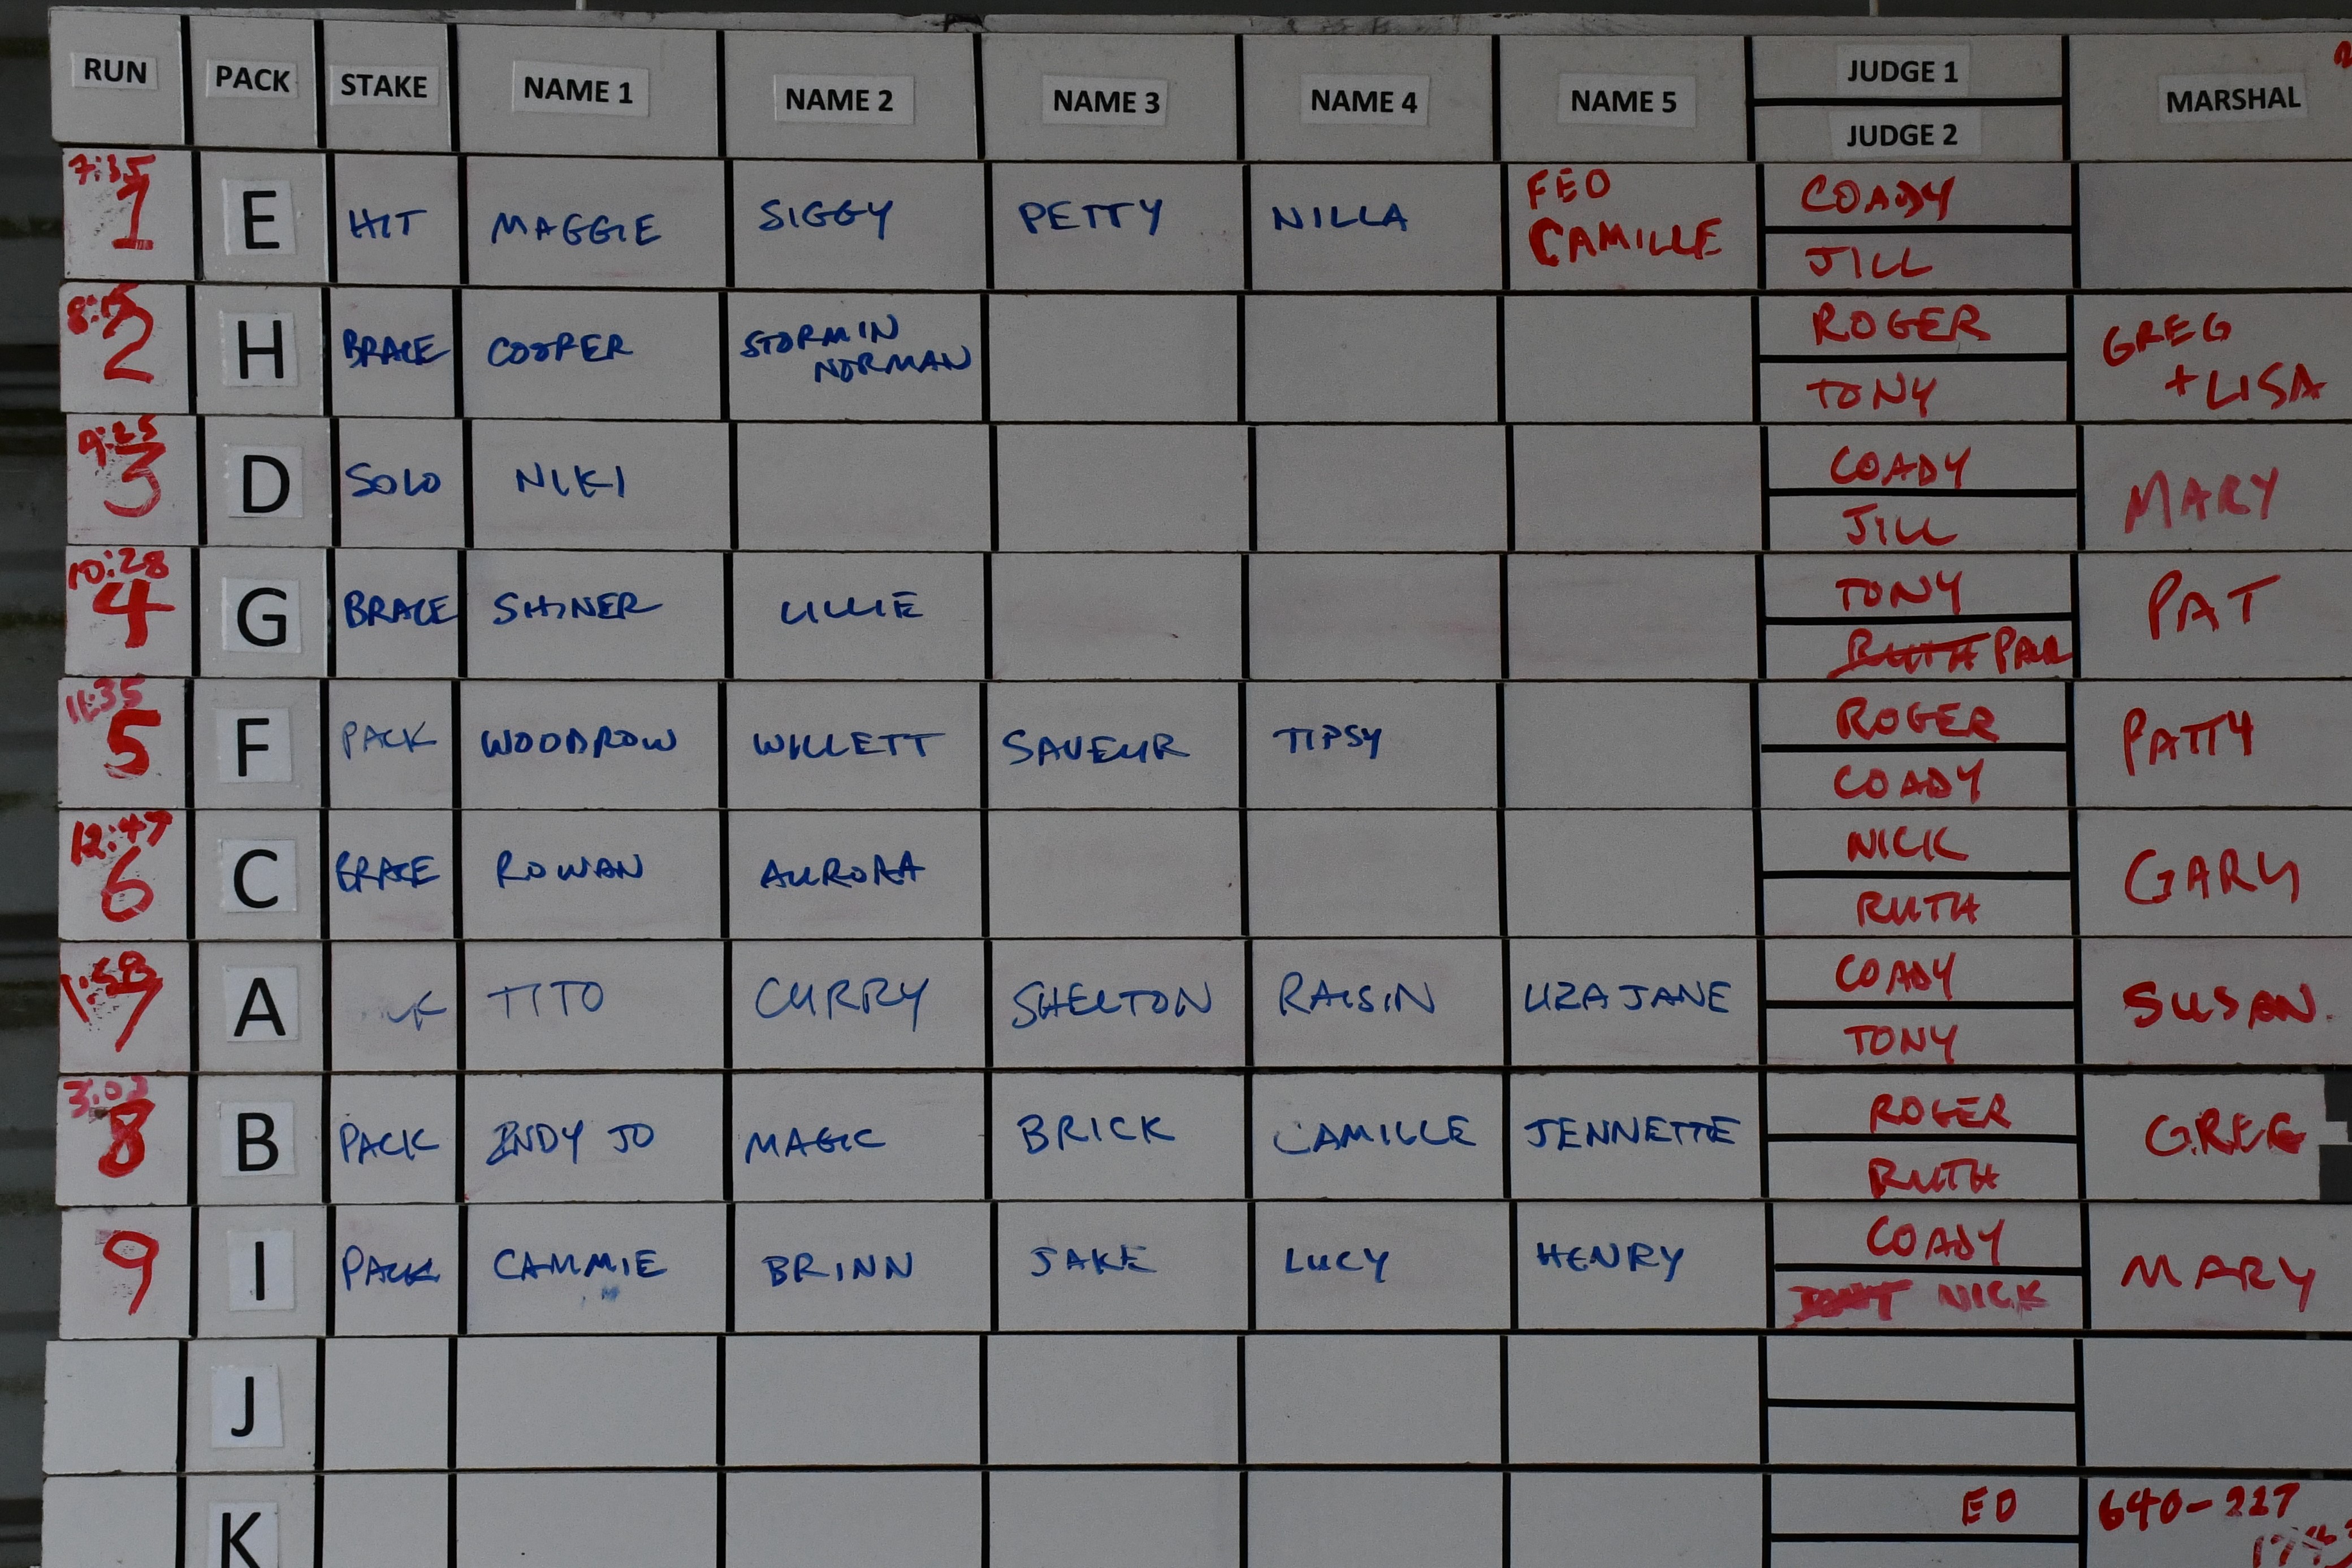 RUN PACK STAKE NAME 1 NAME 2 NAME 3 NAME 4 NAME 5 JUDGE 1 MARSHAL
JUDGE 2
7:35
1 E HIT MAGGIE SIGGY PETTY NILLA FEO COADY
CAMILLE JILL
2 H BRACE COOPER STORMIN ROGER GREG
NORMAN TONY +LISA
9:25
3 D SOLO NIKI COADY MARY
JILL
10:28
4 G BRACE SHINER LILLIE TONY PAT
RUTH PAUL
11:35
5 F PACK WOODROW WILLETT SAVEUR TIPSY ROGER PATTY
COADY
12:47
6 C BRACE ROWAN AURORA NICK GARY
RUTH
1:58
7 A TITO CURRY SHELTON RAISIN LIZA JANE COADY SUSAN
TONY
3:03
8 B PACK INDY JO MAGIC BRICK CAMILLE JENNETTE ROGER GREG
RUTH
9 I PACK CAMMIE BRINN JAKE LUCY HENRY COADY MARY
NICK
J
K ED 640-227